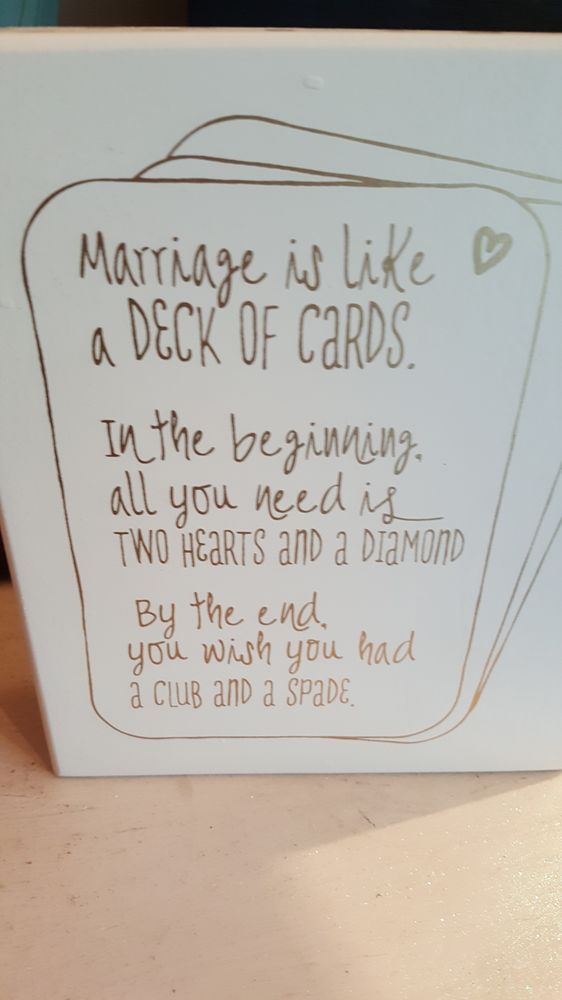 Marriage is like
a DECK OF CaRDS.
In the beginning,
all you need is
TWO HEaRTS anD a DIaMOnD
By the end,
you wish you had
a CLUB anD a SPaDE.